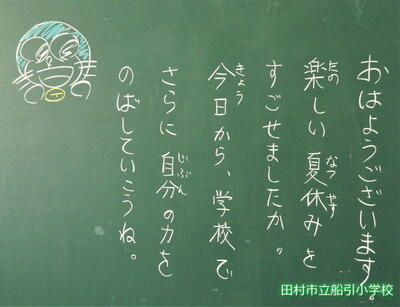 おはようございます。
楽しい夏休みを
すごせましたか。
今日から、学校で
さらに自分の力を
のばしていこうね。
たの
なつやす
きょう
じぶん
田村市立船引小学校